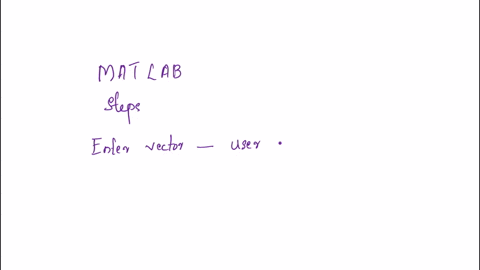 MATLAB
Steps
Enter vector — user .